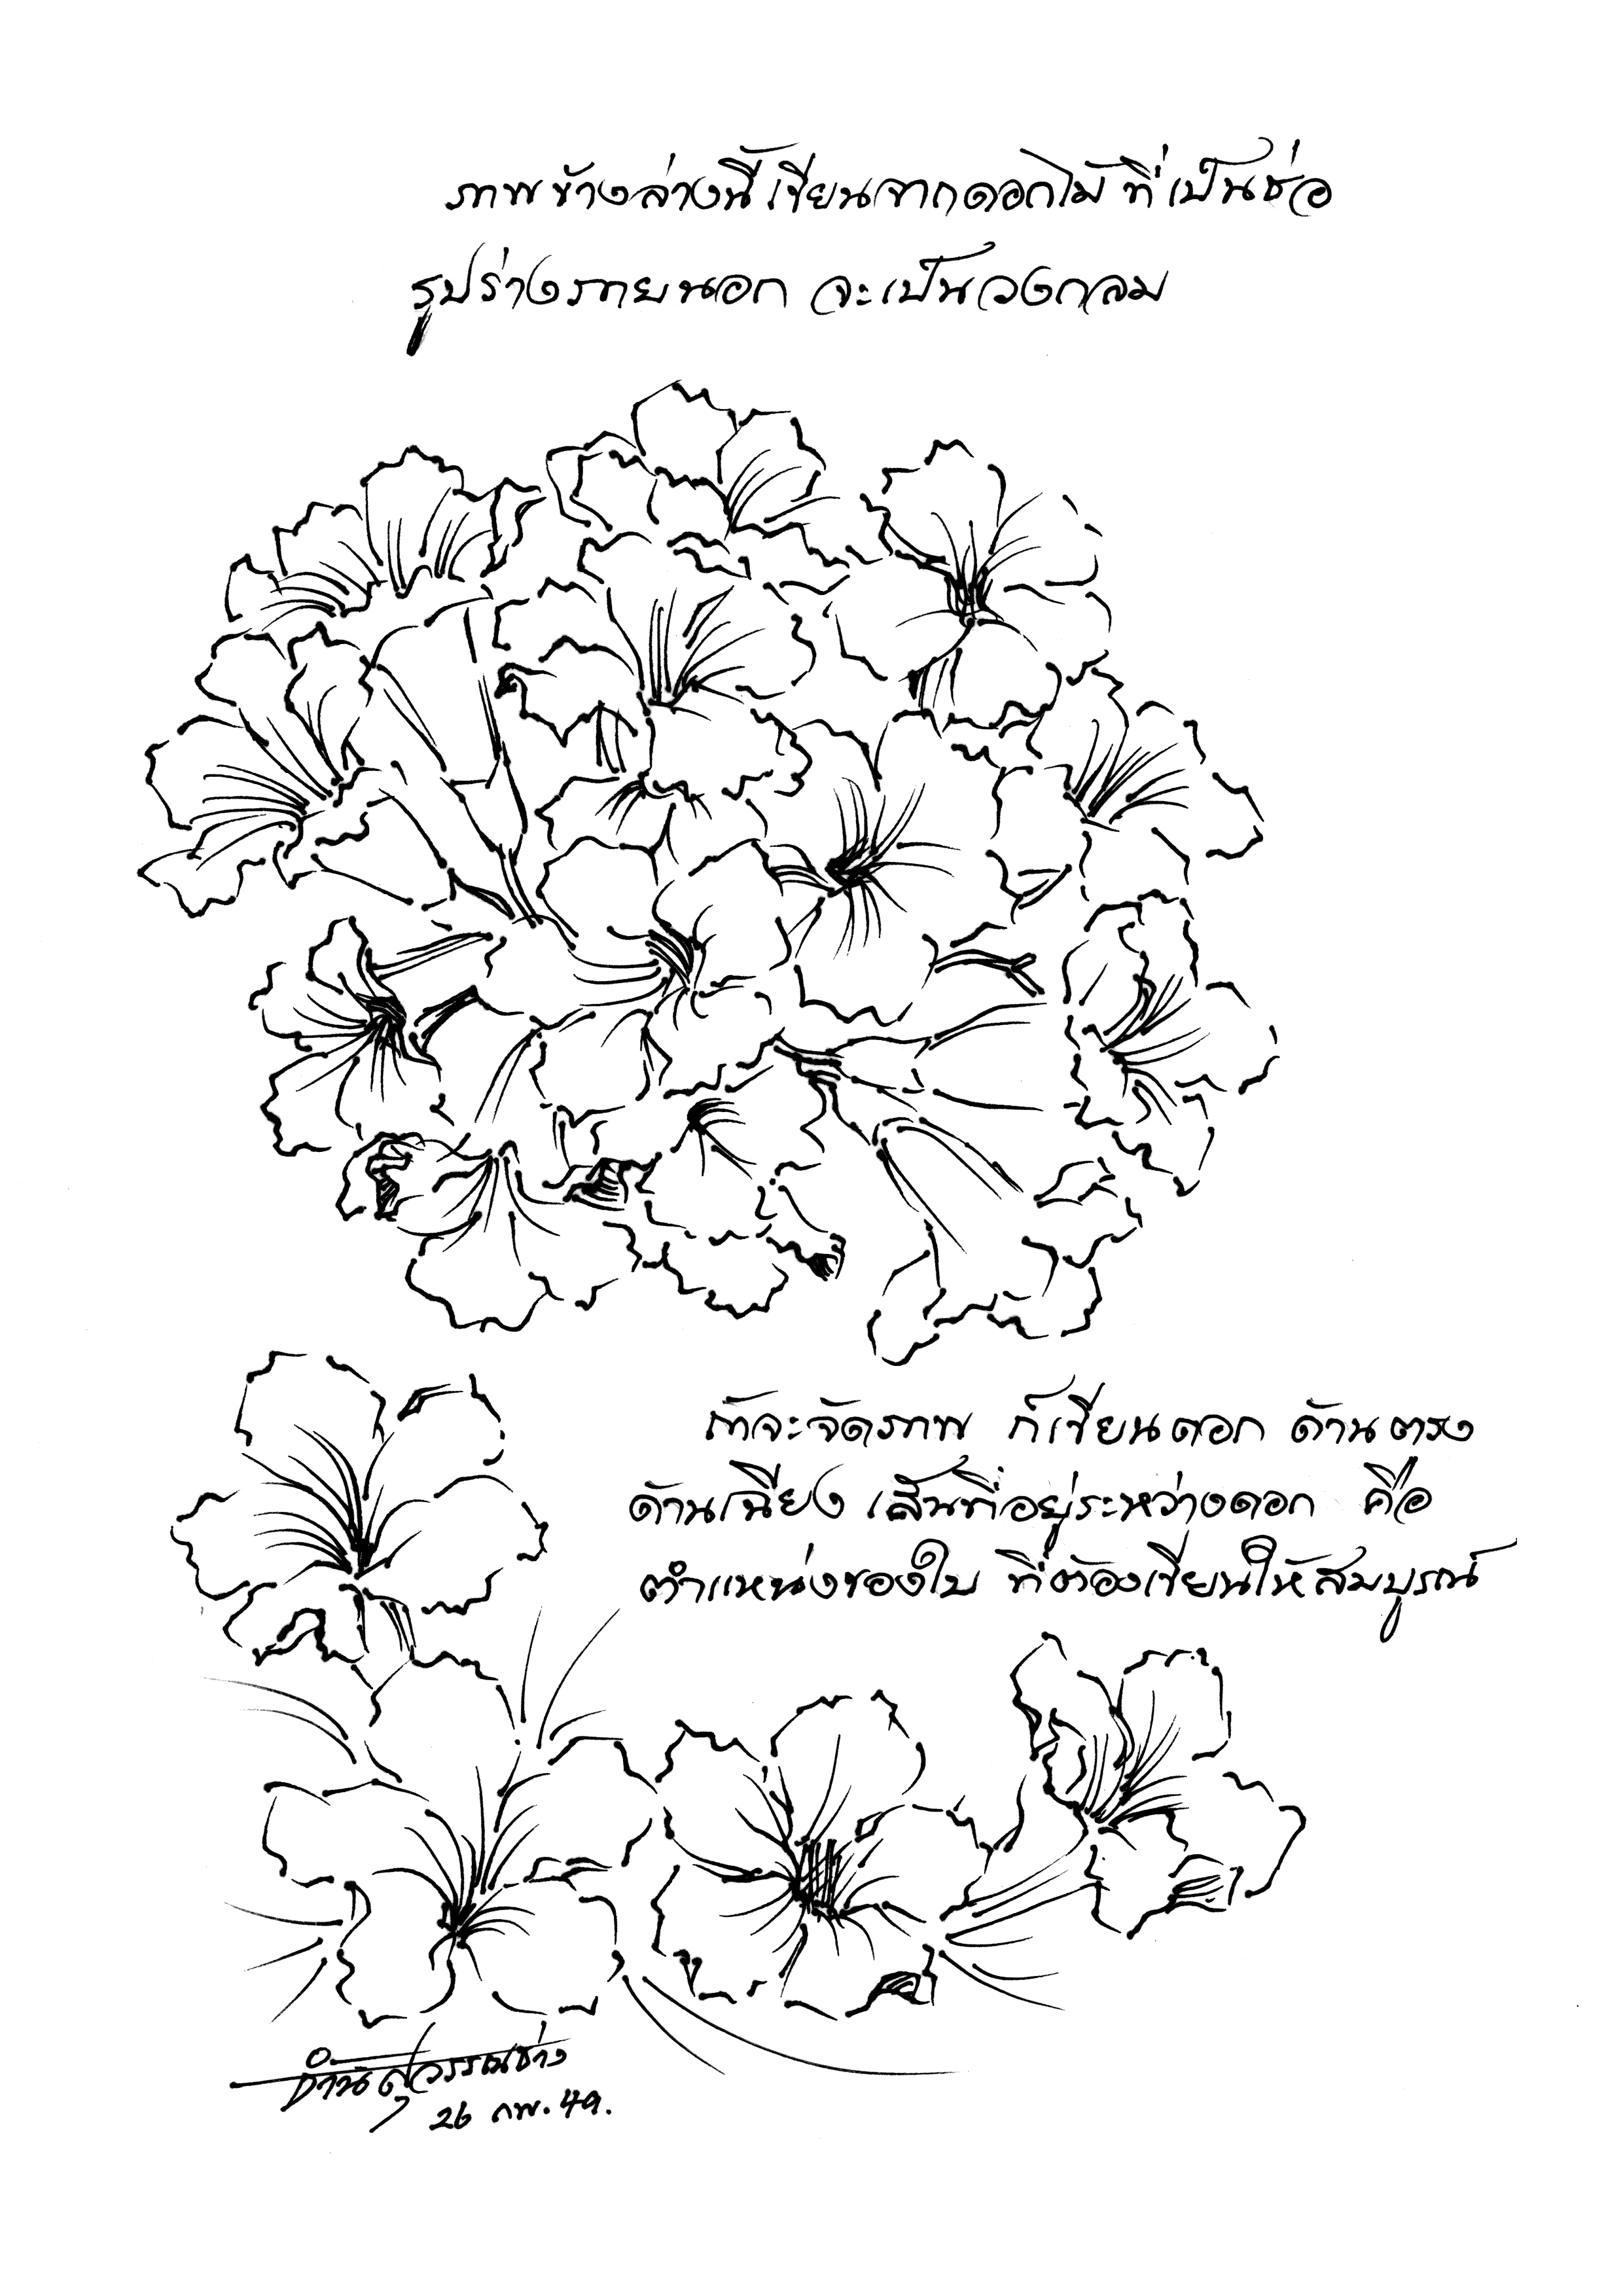 ภาพข้างล่างนี้เขียนจากดอกไม้ ที่เป็นช่อ
รูปร่างภายนอก จะเป็นวงกลม
ถ้าจะจัดภาพ ก็เขียนดอก ด้านตรง
ด้านเฉียง เส้นที่อยู่ระหว่างดอก คือ
ตำแหน่งของใบ ที่ต้องเขียนให้สมบูรณ์
สุวรรณช่าง
26 กพ. 49.